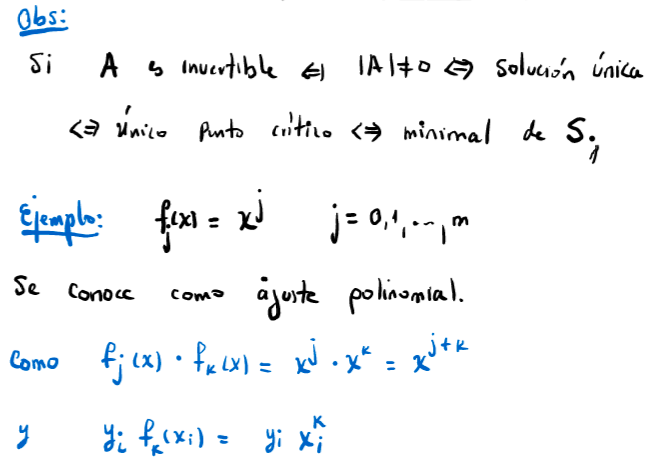 Obs:
Si A es invertible ⇔ |A|≠0 ⇔ solución única
⇔ único punto crítico ⇔ minimal de S.
Ejemplo: f_j(x) = x^j j = 0,1,...,m
Se conoce como ajuste polinomial.
Como f_j(x) · f_k(x) = x^j · x^k = x^{j+k}
y y_i f_k(x_i) = y_i x_i^k